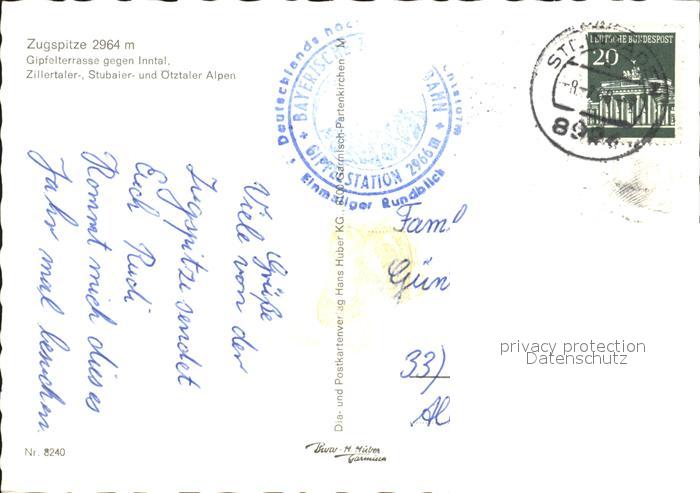 Zugspitze 2964 m
Gipfelterrasse gegen Inntal,
Zillertaler-, Stubaier- und Ötztaler Alpen
Viele Grüße
von der
Zugspitze sendet
Euch Rudi
Kommt mich dieses
Jahr mal besuchen.
Nr. 8240
Deutschlands höc
BAYERISCHE Z BAHN
GIPFELSTATION 2966 m
Einmaliger Rundblick
Dia- und Postkartenverlag Hans Huber KG., 8100 Garmisch-Partenkirchen M
Huber
Garmisch
DEUTSCHE BUNDESPOST
20
Faml
Gün
33)
Al
privacy protection
Datenschutz